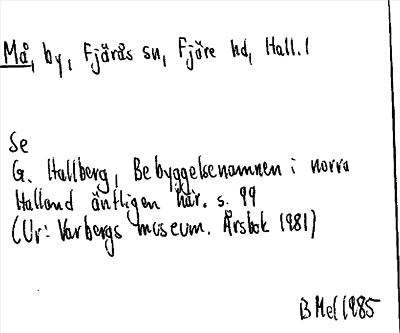 Må, by, Fjärås sn, Fjäre hd, Hall. l
Se
G. Hallberg, Bebyggelsenamnen i norra
Halland äntligen här. s. 99
(Ur: Varbergs museum. Årsbok 1981)
B Mel 1985